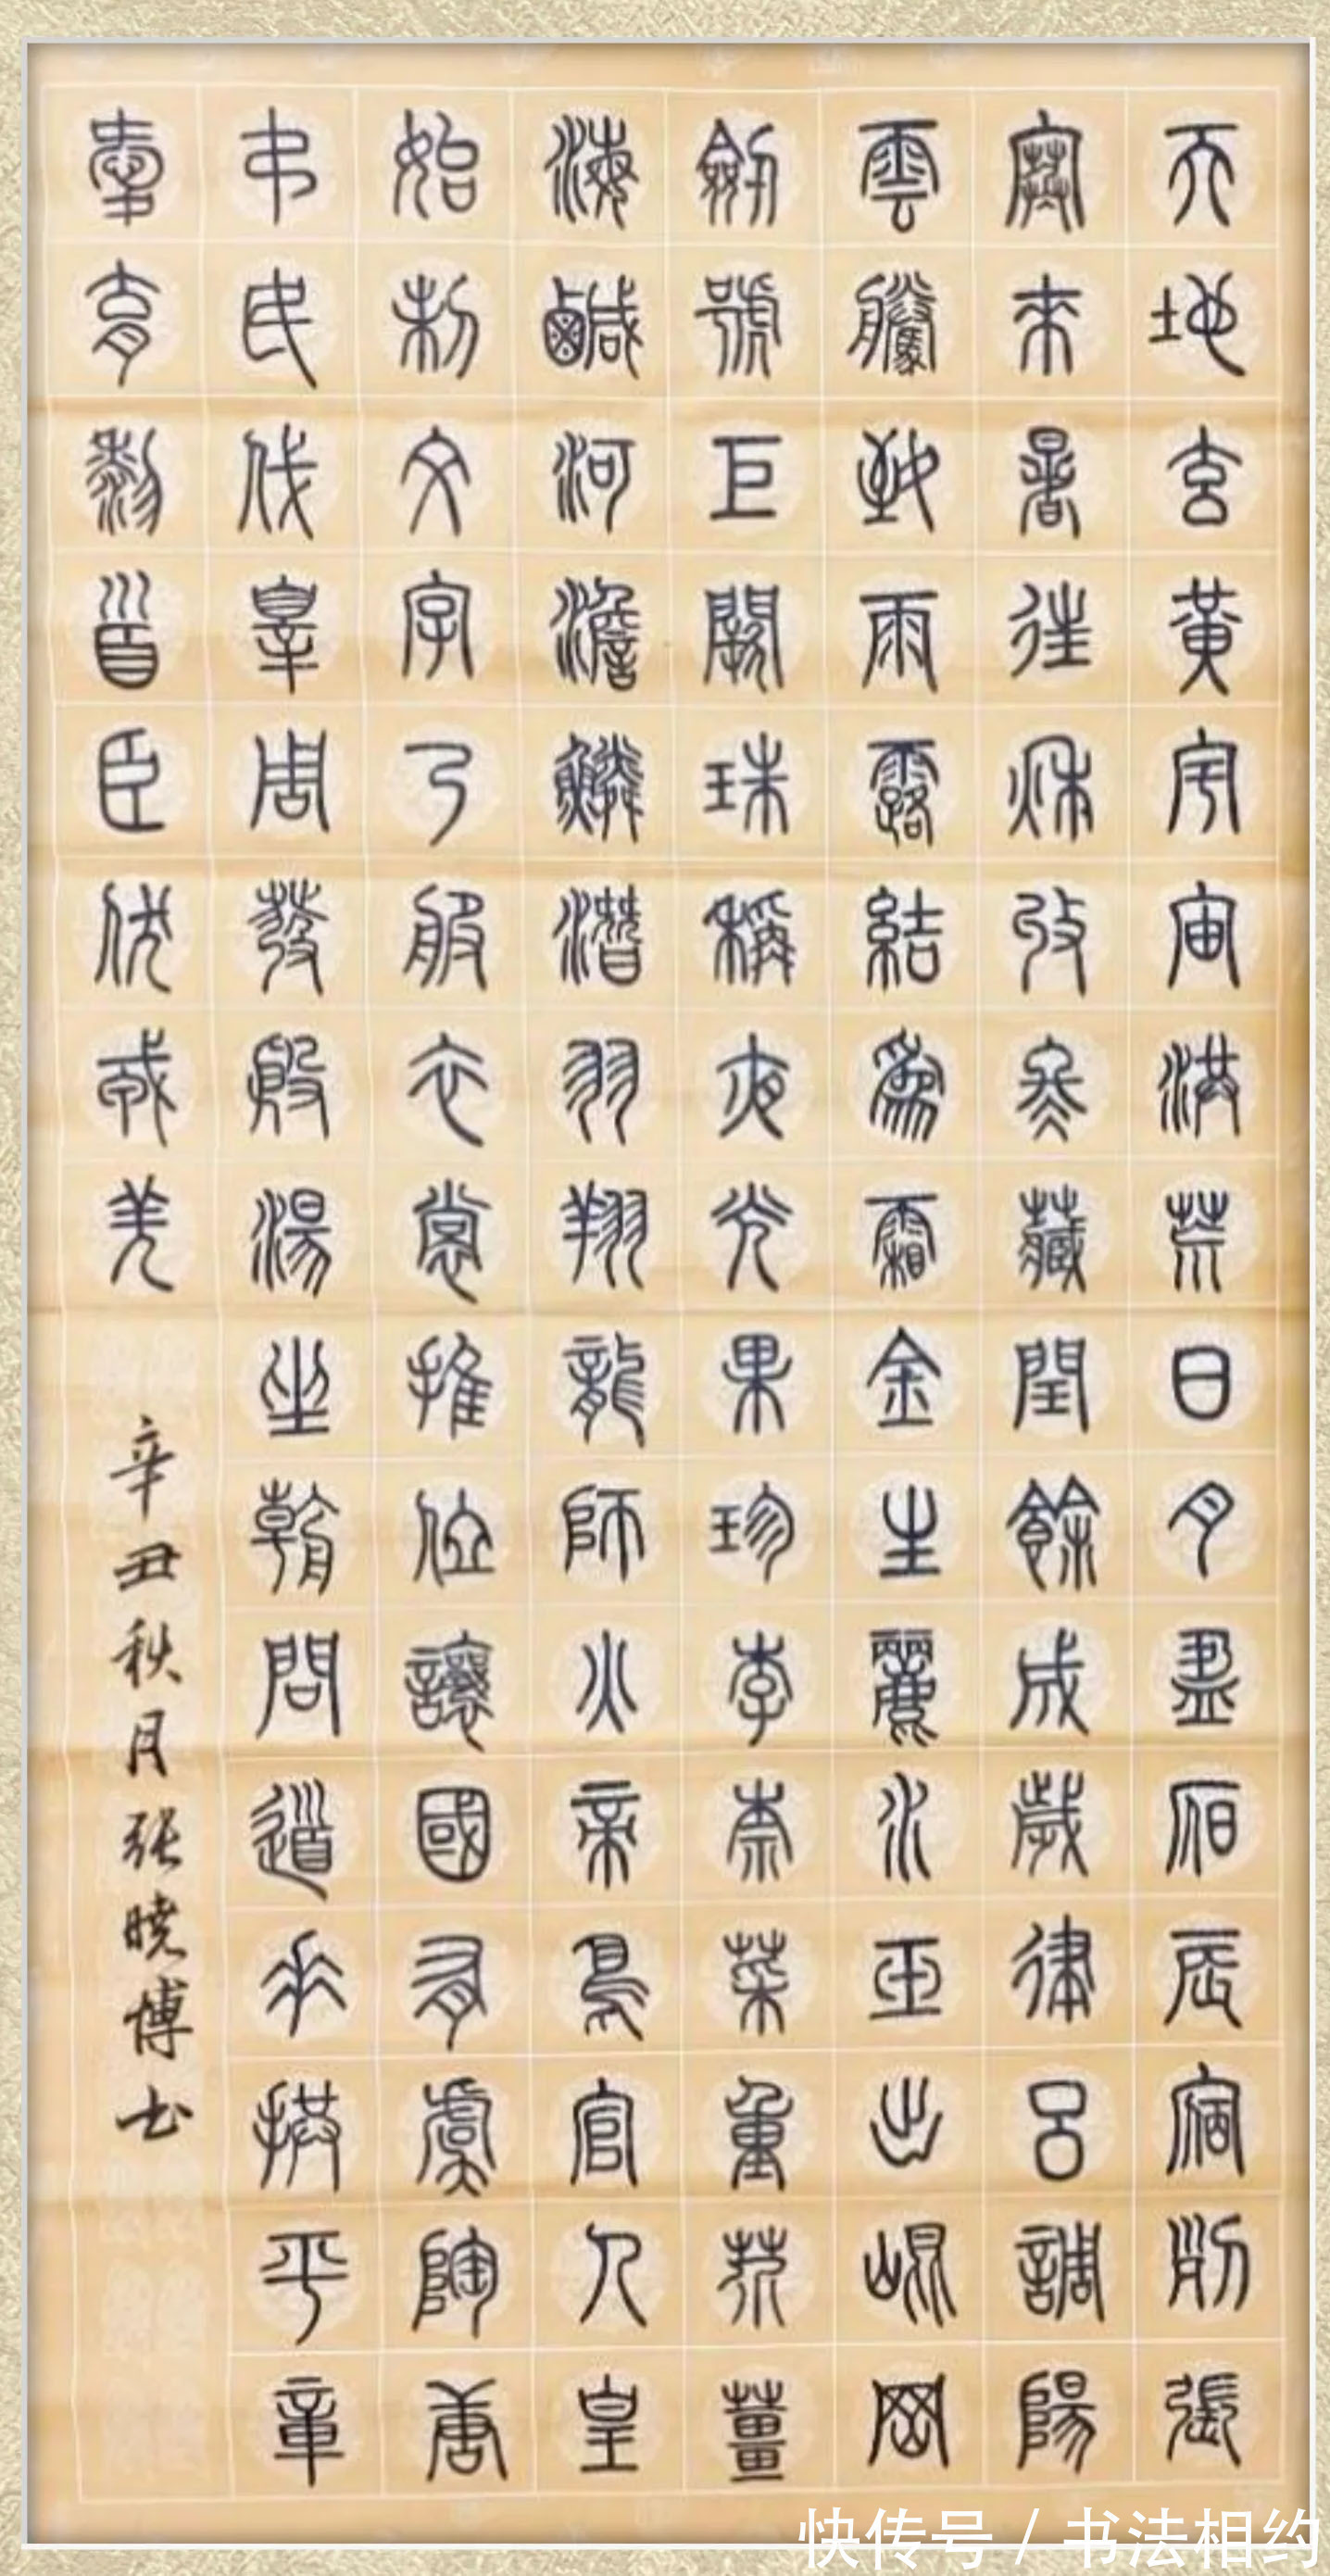 天地玄黃宇宙洪荒日月盈昃辰宿列張
寒來暑往秋收冬藏閏餘成歲律呂調陽
雲騰致雨露結爲霜金生麗水玉出崐岡
劒號巨闕珠稱夜光果珍李柰菜重芥薑
海鹹河澹鱗潛羽翔龍師火帝鳥官人皇
始制文字乃服衣裳推位讓國有虞陶唐
弔民伐辠周發殷湯坐朝問道垂拱平章
愛育黎首臣伏戎羌
辛丑秋月张晓博书
快传号 / 书法相约